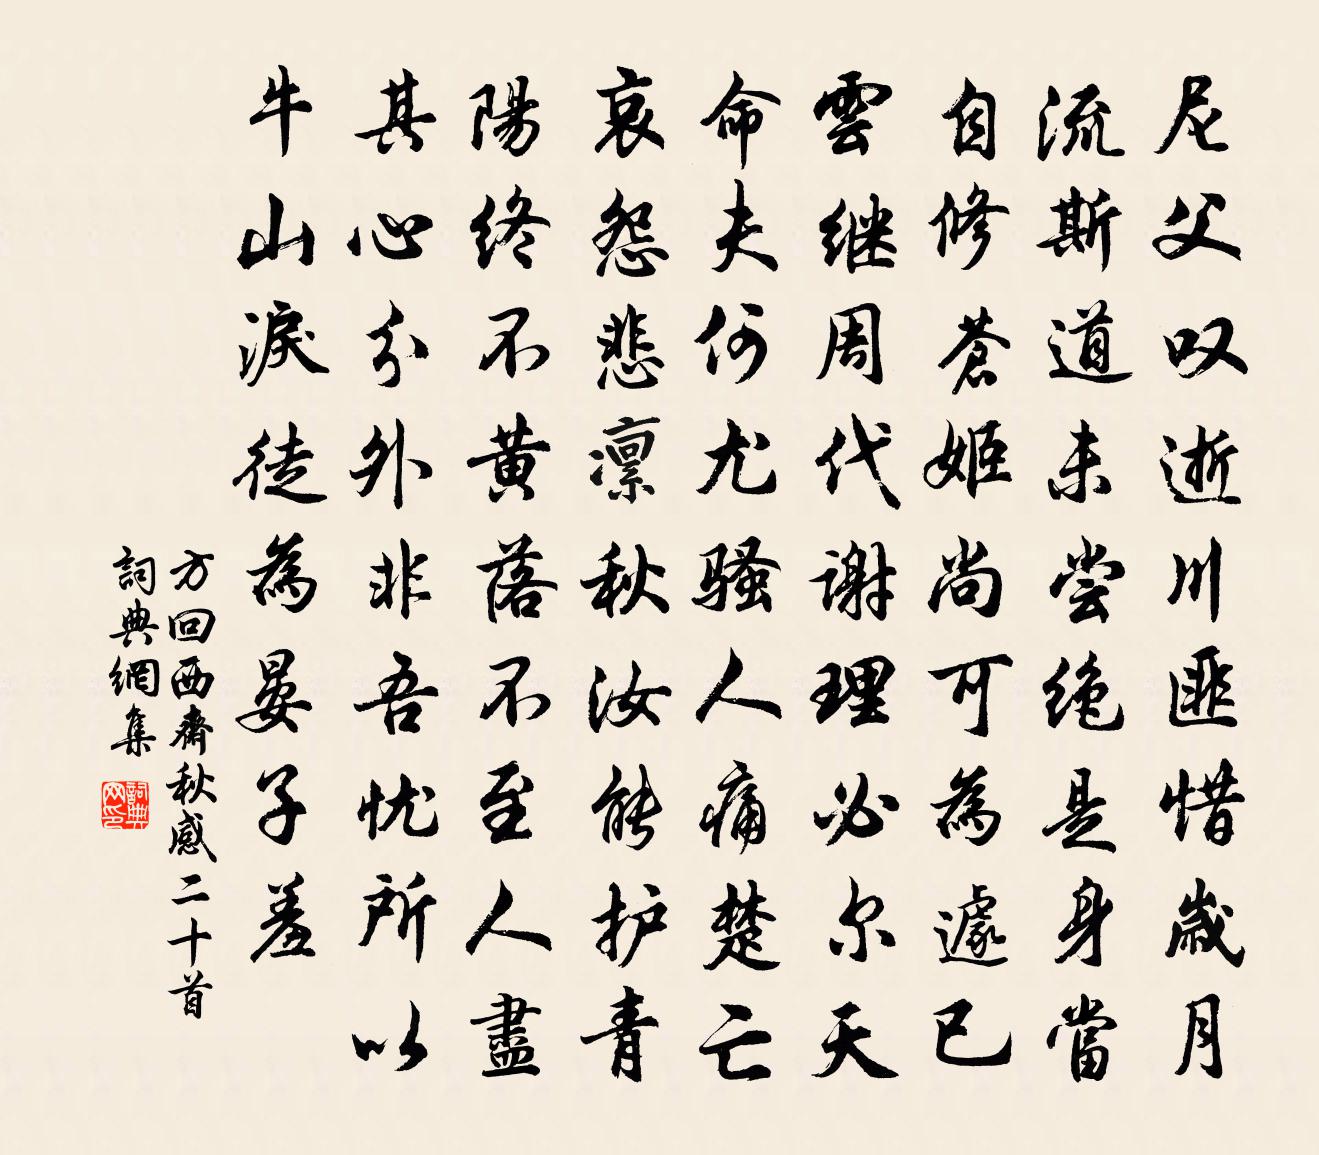 尼父叹逝川匪惜歳月
流斯道未尝绝是身當
自修蒼姬尚可為遽已
雲继周代谢理必尔天
命夫何尤骚人痛楚亡
哀怨悲凛秋汝能护青
陽终不黄落不至人盡
其心分外非吾忧所以
牛山淚徒為晏子羞
方回西齋秋感二十首
詞典網集
詞典网印